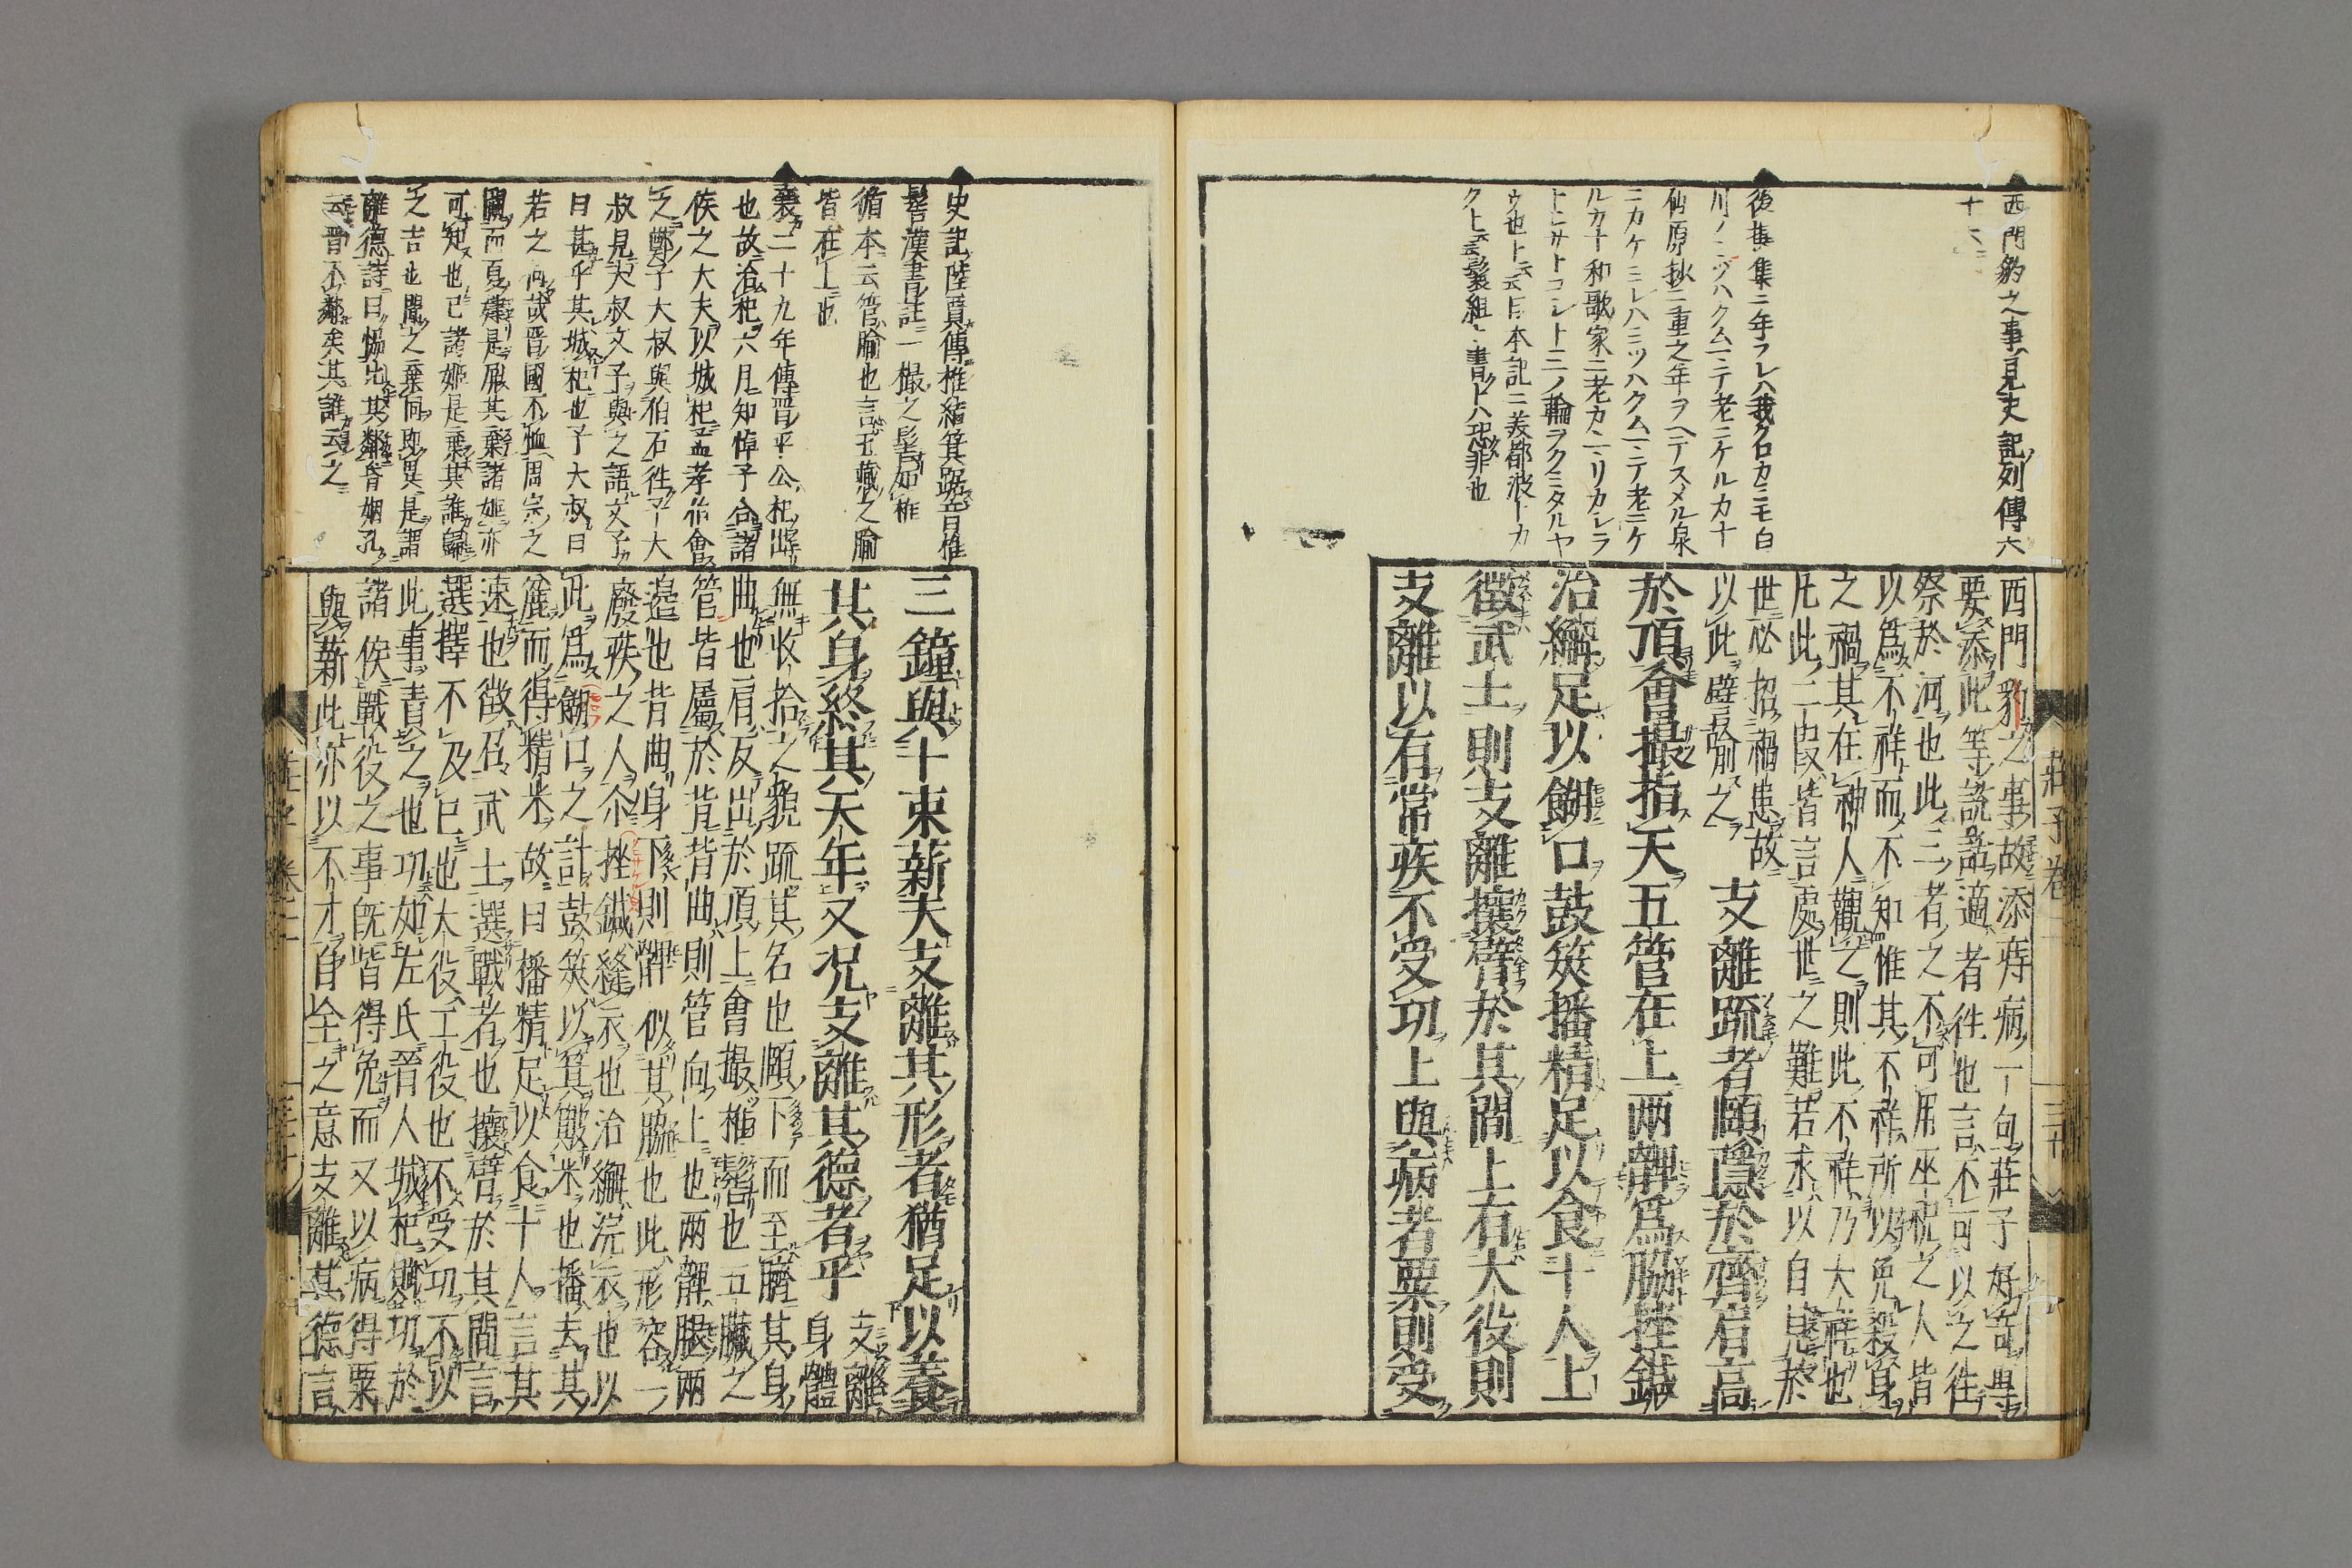 西門豹之事見史記列傳六
十六
後撰集ニ年フレハ我クロカミモ白
川ノミヅハクムマテ老ニケルカナ
ニカケミレハミツハクムマテ老ニケ
ルカナ和歌家ニ老カヽリカレラ
ク上云鬟組ト書ハ惡非也
西門豹之事故添痔病一句莊子好竒與
要添此等說話適者往也言不可以之往
祭於河也此三者之不可用巫祝之人皆
以爲不祥而不知惟其不祥所以免殺身
之禍其在神人觀之則此不祥乃大祥也
凡此二段皆言處世之難若求以自見於
世必招禍患故
以此譬喻之
支離疏者頤隱於齊肩高
於頂會撮指天五管在上兩髀爲脇挫鍼
治繲足以餬口鼓筴播精足以食十人上
徵武士則支離攘臂於其間上有大役則
支離以有常疾不受功上與病者粟則受
莊子卷二
三十
史記陸賈傳椎結箕踞音椎
髻漢書註一撮之髻如椎
循本云管腧也言五藏之腧
皆在上也
襄二十九年傳晉平公杞出
也故治杞六月知悼子合諸
侯之大夫以城杞孟孝伯會
之鄭子大叔與伯石往子大
叔見大叔文子與之語文子
曰甚乎其城杞也子大叔曰
若之何哉晉國不恤周宗之
闕而夏肄是屛其棄諸姬亦
可知也已諸姬是棄其誰歸
之吉也聞之棄同即異是謂
離德詩曰協比其鄰昏姻孔
云晉不鄰矣其誰云之
三鐘與十束薪夫支離其形者猶足以養
其身終其天年又況支離其德者乎
支離
身體
無收拾之貌疏其名也頤下而至臍其身
曲也肩反出於頂上會撮椎髻也五臟之
管皆屬於背背曲則管向上也兩髀腿兩
邉也背曲身下則髀似其脇也此形容一
廢疾之人尒挫鍼縫衣也治繲浣衣也以
此爲餬口之計鼓筴以箕簸米也播去其
麄而得精米故曰播精足以食十人言其
速也徵召武士選戰者也攘臂於其間言
選擇不及已也大役工役也不受功不以
此事責之也功如左氏晉人城杞賦功於
諸侯戰役之事旣皆得免而又以病得粟
與薪此亦以不才自全之意支離其德言
莊子卷二